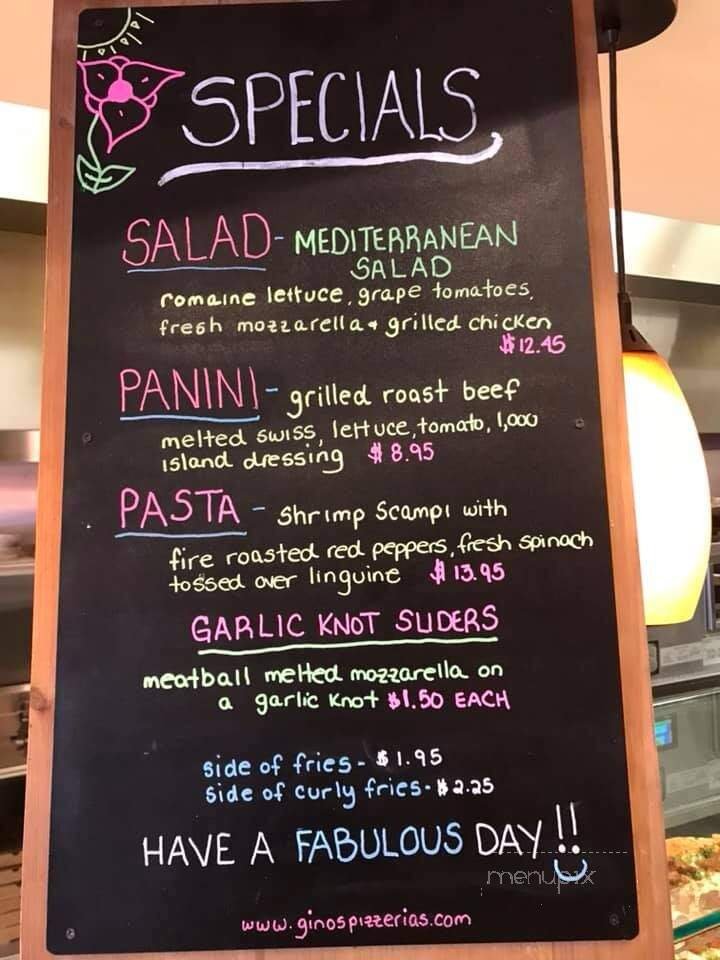 SPECIALS
SALAD - MEDITERRANEAN
SALAD
romaine lettuce, grape tomatoes,
fresh mozzarella & grilled chicken
$12.45
PANINI - grilled roast beef
melted swiss, lettuce, tomato, 1,000
island dressing $8.95
PASTA - shrimp scampi with
fire roasted red peppers, fresh spinach
tossed over linguine $13.95
GARLIC KNOT SLIDERS
meatball melted mozzarella on
a garlic knot $1.50 EACH
side of fries - $1.95
side of curly fries - $2.25
HAVE A FABULOUS DAY!!
menupix
www.ginospizzerias.com